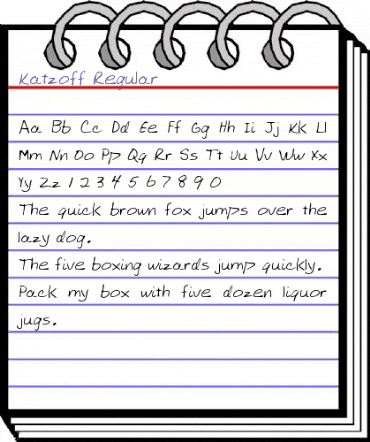 Katzoff Regular
Aa Bb Cc Dd Ee Ff Gg Hh Ii Jj Kk Ll
Mm Nn Oo Pp Qq Rr Ss Tt Uu Vv Ww Xx
Yy Zz 1 2 3 4 5 6 7 8 9 0
The quick brown fox jumps over the
lazy dog.
The five boxing wizards jump quickly.
Pack my box with five dozen liquor
jugs.